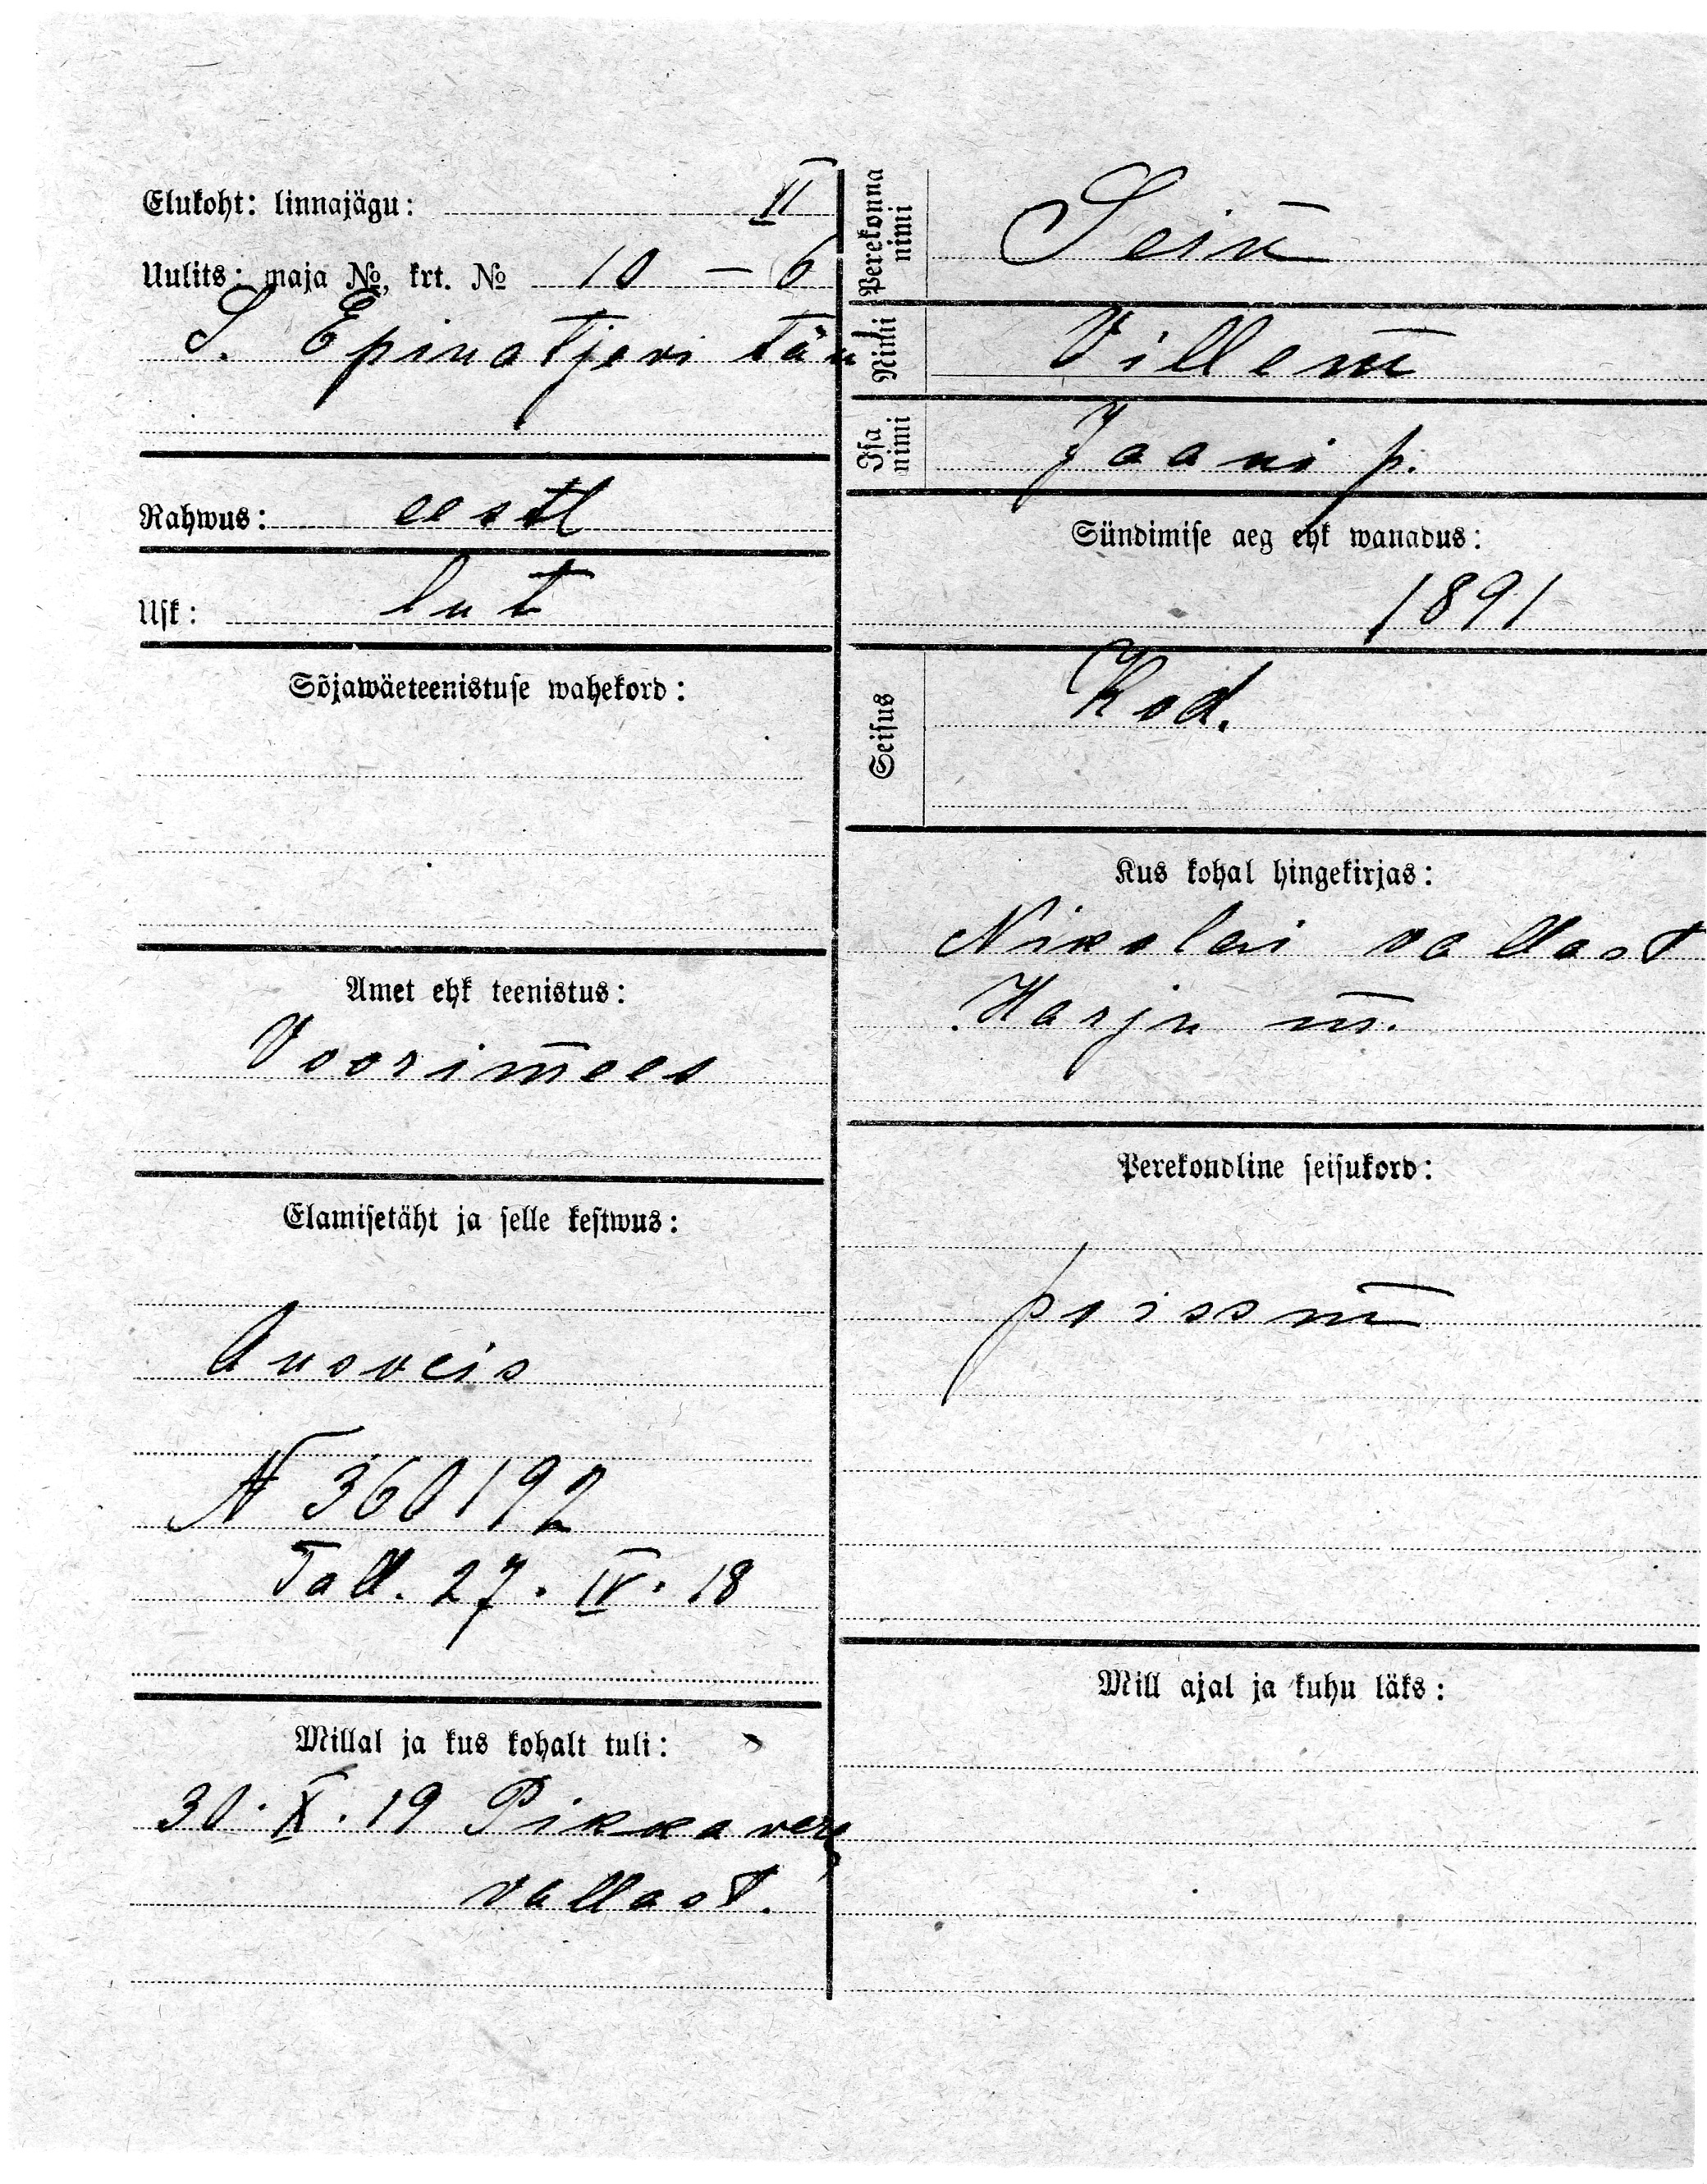 Elukoht: linnajägu: II
Uulits: maja №, krt. № 10 – 6
S. Epinatjevi tän
Rahwus: eestl
Usk: lut
Sõjawäeteenistuse wahekord:
Amet ehk teenistus:
Voorimees
Elamisetäht ja selle kestwus:
Ausveis
N 360192
Tall. 27. IV. 18
Millal ja kus kohalt tuli:
30. X. 19 Pikkavere
vallast.
Perekonna nimi
Sein
Nimi
Villem
Isa nimi
Jaani p.
Sündimise aeg ehk wanadus:
1891
Seisus
Kod.
Kus kohal hingekirjas:
Nikolai vallast
Harju m.
Perekondline seisukord:
poissm
Mill ajal ja kuhu läks: